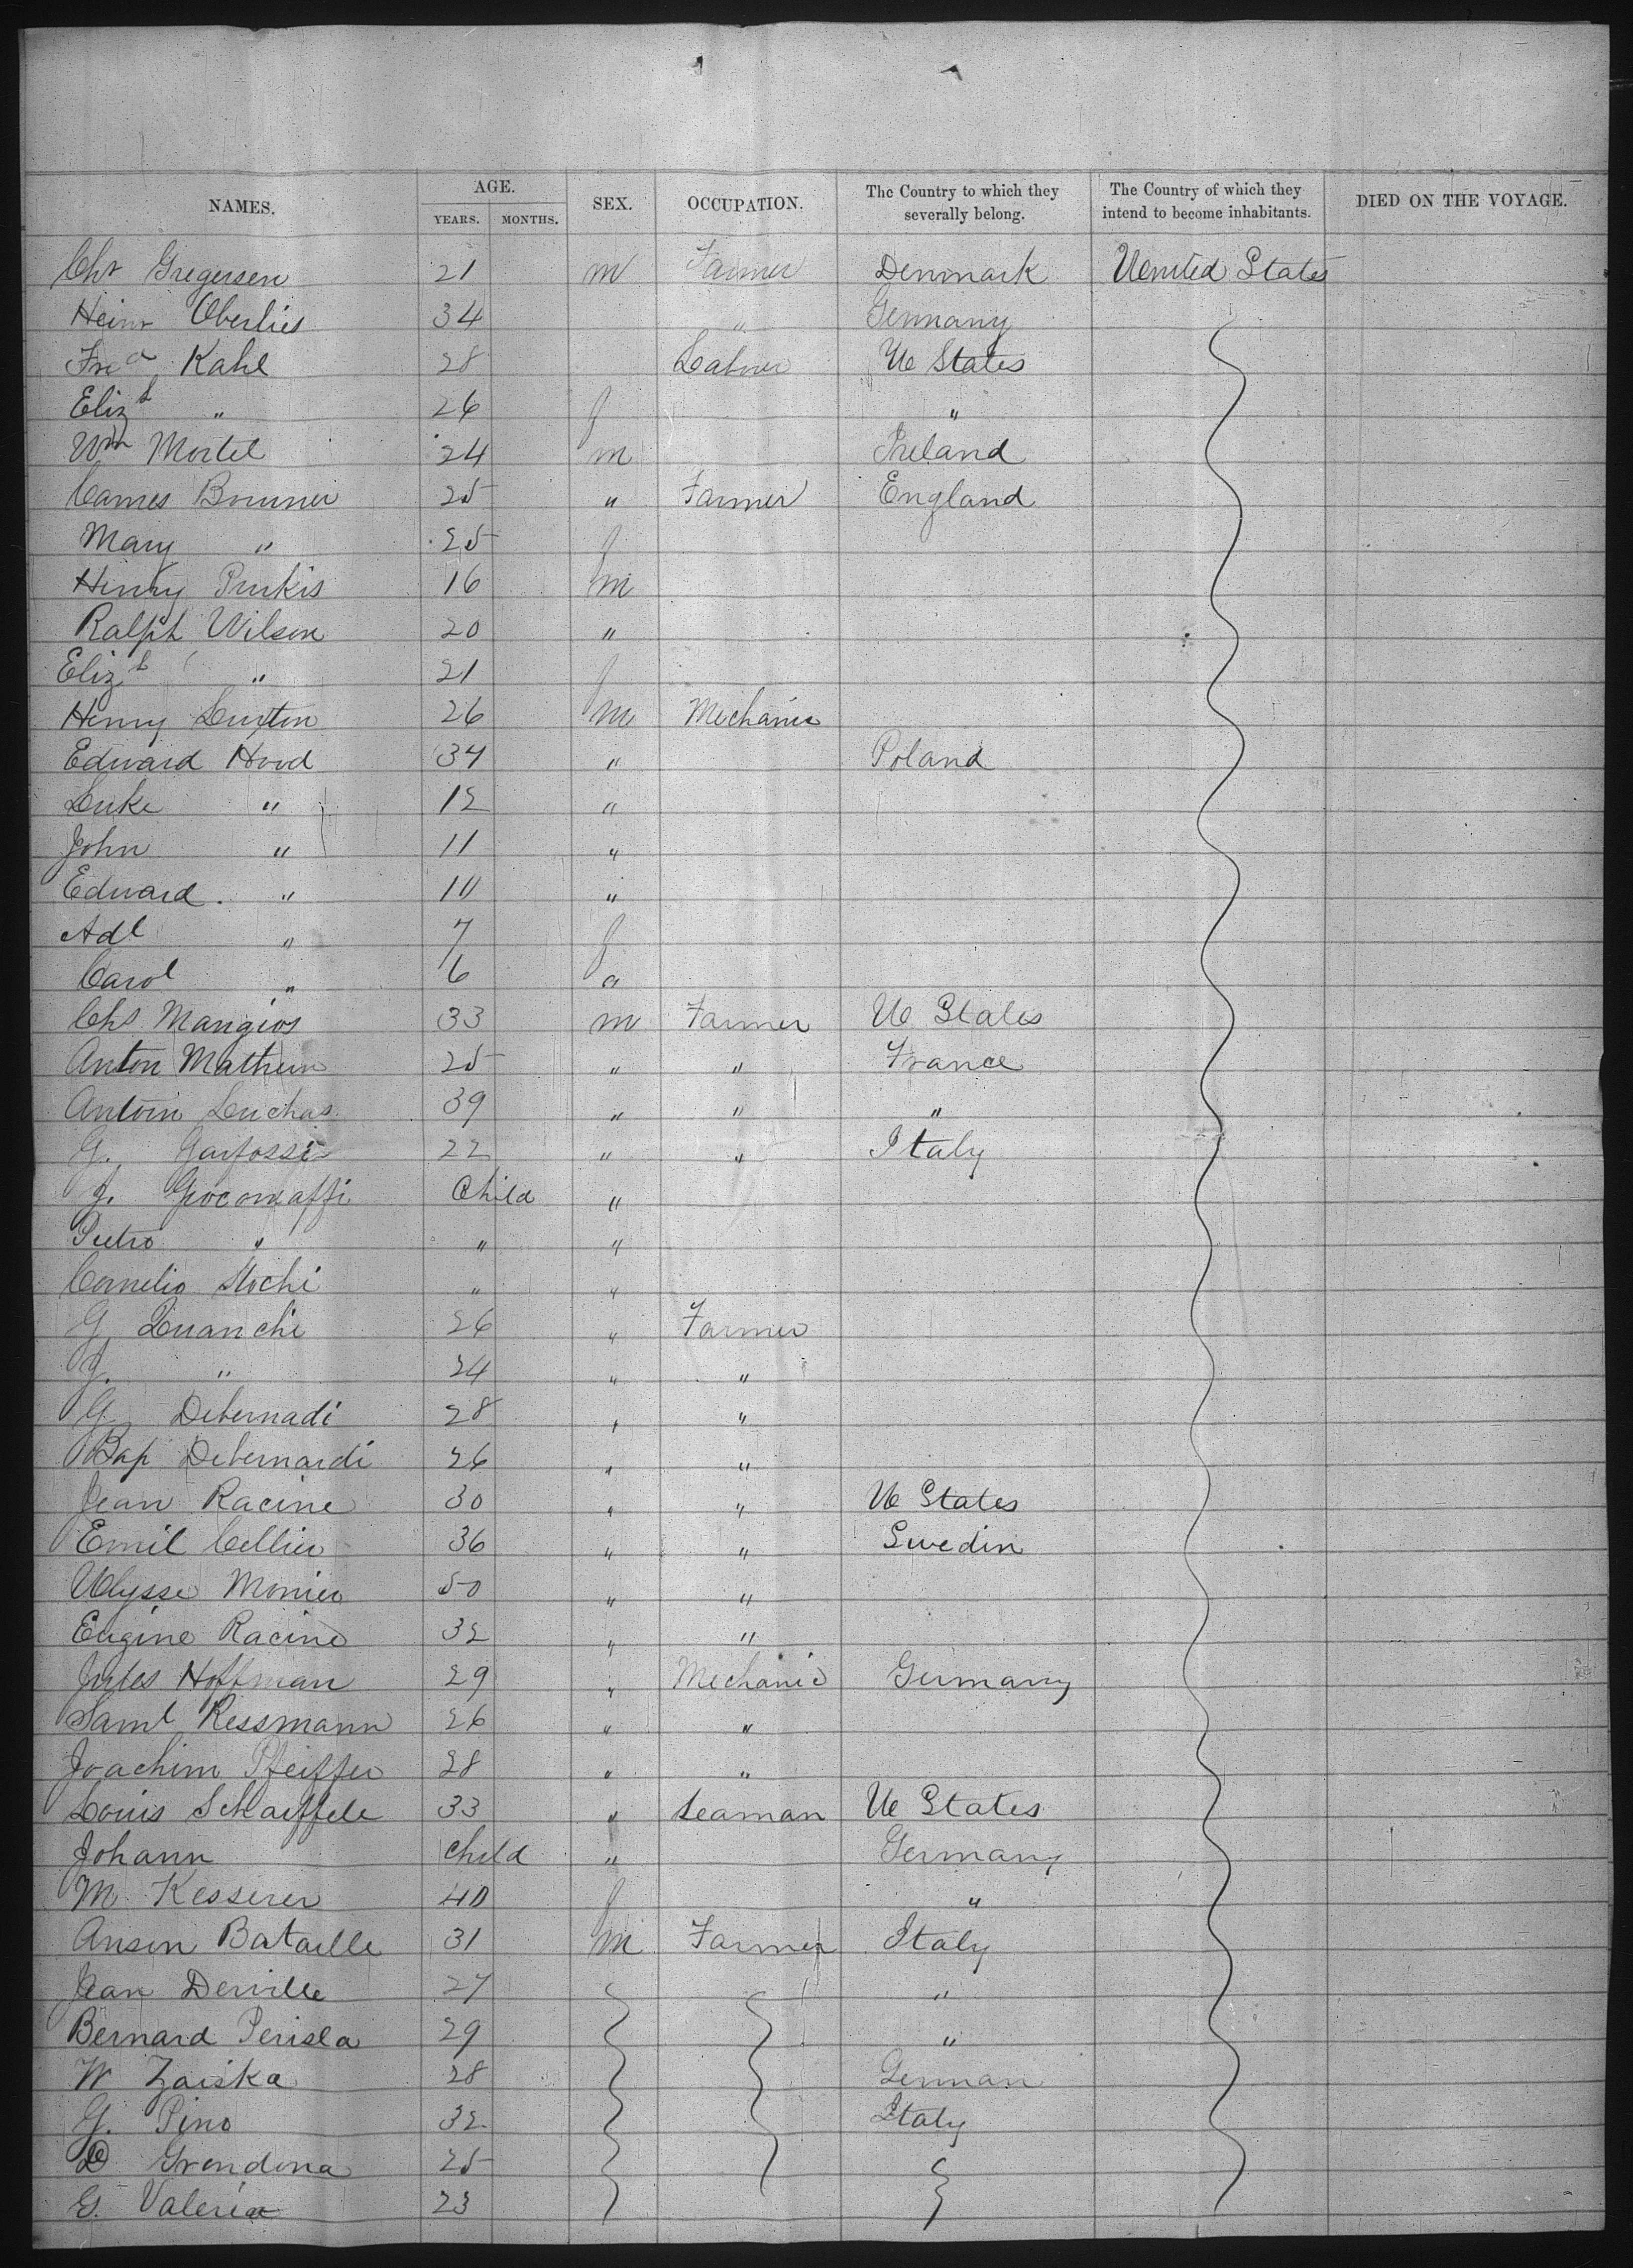 NAMES. AGE. SEX. OCCUPATION. The Country to which they severally belong. The Country of which they intend to become inhabitants. DIED ON THE VOYAGE.
YEARS. MONTHS.
Chr Gregersen 21 m Farmer Denmark United States
Heinr Oberlies 34 " Germany
Fred Kahl 28 Labrer U States
Elizth " 26 f "
Wm Mortel 24 m Ireland
James Brunner 25 " Farmer England
Mary " 25 f
Henry Purkis 16 m
Ralph Wilson 20 "
Elizth " 21 f
Henry Luxton 26 m Mechanic
Edward Hood 34 " Poland
Luke " 12 "
John " 11 "
Edward. " 10 "
Adl " 7 f
Carol " 6 "
Chs Mangios 33 m Farmer U States
Anton Mathein 25 " " France
Antoin Luchas 39 " " "
G. Garfossi 22 " " Italy
J. Giocomaffi Child "
Pietro " " "
Cornelio Stochi " "
G Luanchi 26 " Farmer
J. " 24 " "
G Debernadi 28 " "
Bap Debernardi 26 " "
Jean Racine 30 " " U States
Emil Cellier 36 " " Swedin
Ulysse Monier 50 " "
Eugine Racine 32 " "
Jules Hoffman 29 " Mechanic Germany
Saml Ressmann 26 " "
Joachim Pfeiffer 28 " "
Louis Schaeffele 33 " Seaman U States
Johann Child " Germany
M Kesserer 40 f "
Ansen Bataille 31 m Farmer Italy
Jean Derville 27 "
Bernard Perisla 29 "
W Zaiska 28 German
G. Pino 32 Italy
D Grendona 25
G. Valeria 23